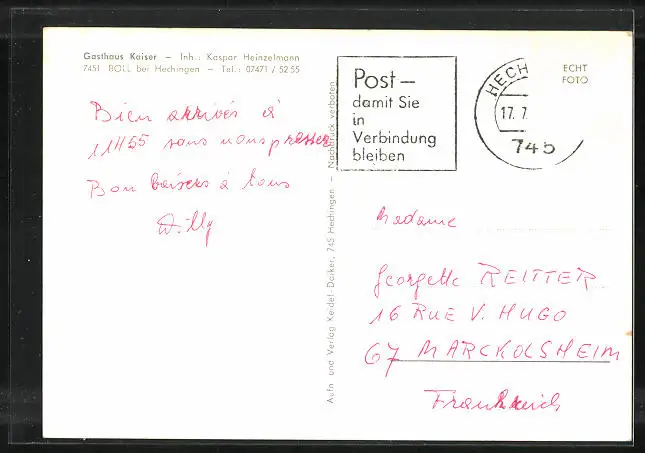 Gasthaus Kaiser – Inh.: Kaspar Heinzelmann
7451 BOLL bei Hechingen – Tel.: 07471 / 52 55
Bien arrivés à
11H55 sans nous presser
Bon baisers à tous
Willy
Aufn. und Verlag Keidel-Daiker, 745 Hechingen – Nachdruck verboten
Post –
damit Sie
in
Verbindung
bleiben
HECH
17. 7
745
ECHT
FOTO
Madame
Georgette REITTER
16 RUE V. HUGO
67 MARCKOLSHEIM
Frankreich